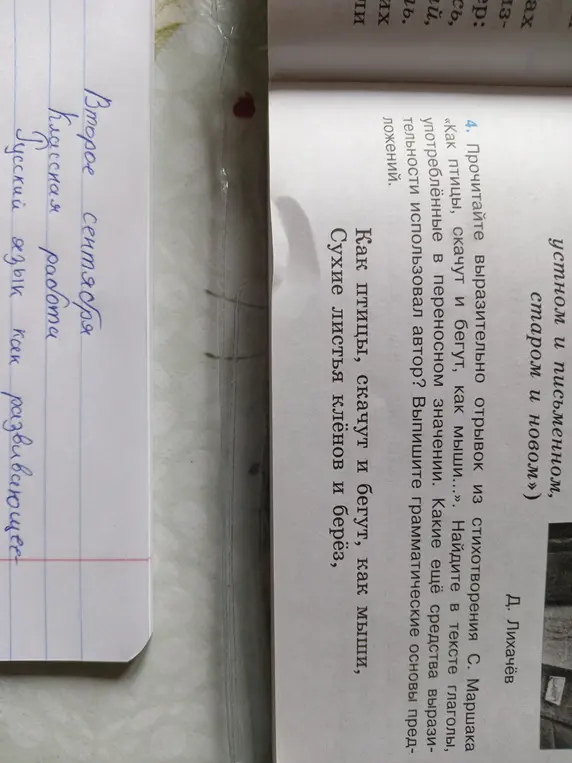 ах
из-
ер:
сь,
ий,
ть.
их
ли
устном и письменном,
старом и новом»)
Д. Лихачёв
4. Прочитайте выразительно отрывок из стихотворения С. Маршака
«Как птицы, скачут и бегут, как мыши...». Найдите в тексте глаголы,
употреблённые в переносном значении. Какие ещё средства вырази-
тельности использовал автор? Выпишите грамматические основы пред-
ложений.
Как птицы, скачут и бегут, как мыши,
Сухие листья клёнов и берёз,
Второе сентября
Классная работа
Русский язык как развивающее-